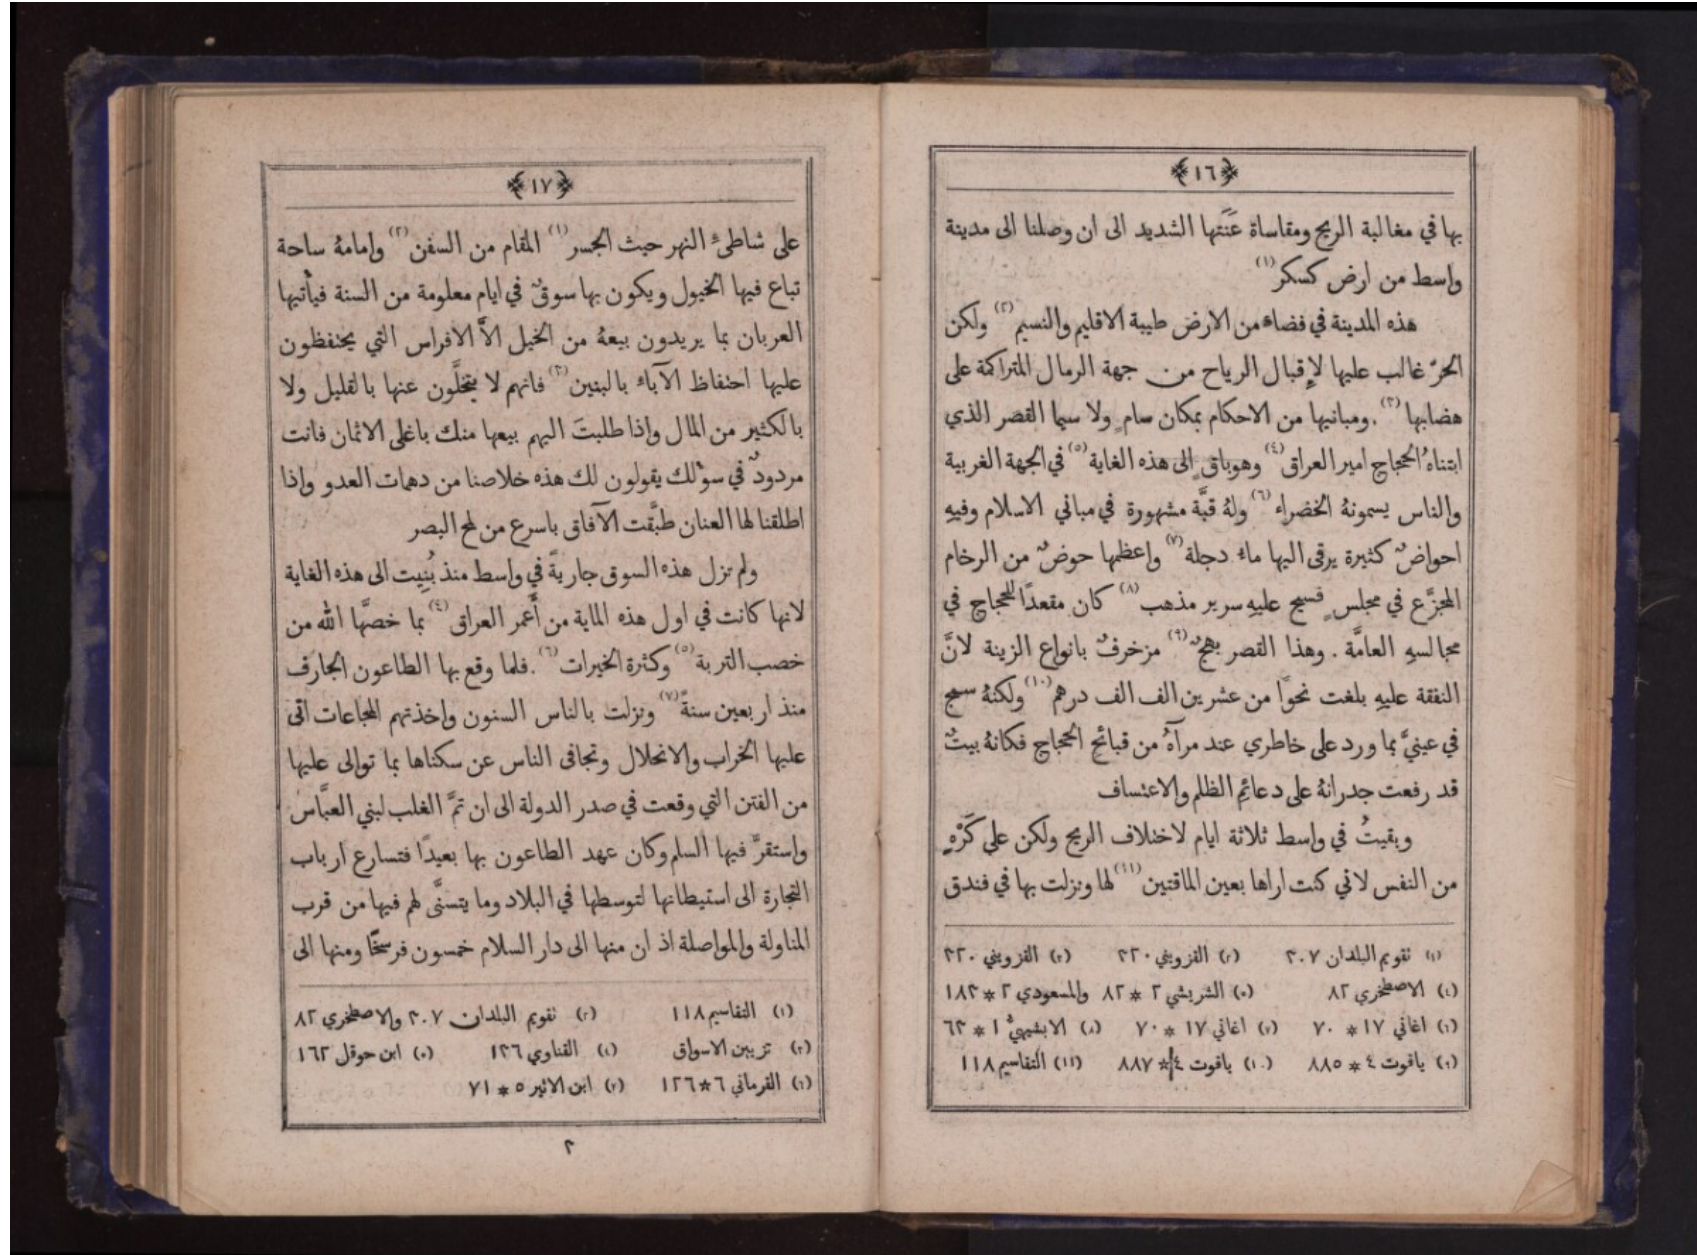 ﴿١٦﴾
بها في مغالبة الريح ومقاساة عَنَتها الشديد الى ان وصلنا الى مدينة
واسط من ارض كسكر (١)
هذه المدينة في فضاءٍ من الارض طيبة الاقليم والنسيم (٢) ولكن
الحرّ غالب عليها لإقبال الرياح من جهة الرمال المتراكمة على
هضابها (٣) . ومبانيها من الاحكام بمكان سامٍ ولا سيما القصر الذي
ابتناهُ الحجاج امير العراق (٤) وهو باقٍ الى هذه الغاية (٥) في الجهة الغربية
والناس يسمونهُ الخضراء (٦) ولهُ قبَّة مشهورة في مباني الاسلام وفيهِ
احواضٌ كثيرة يرقى اليها ماء دجلة (٧) واعظمها حوضٌ من الرخام
المجزَّع في مجلسٍ فسيح عليهِ سرير مذهب (٨) كان مقعدًا للحجاج في
مجالسهِ العامَّة . وهذا القصر بهجٌ (٩) مزخرفٌ بانواع الزينة لانَّ
النفقة عليهِ بلغت نحوًا من عشرين الف الف درهم (١٠) ولكنهُ سمج
في عينيَّ بما ورد على خاطري عند مرآهُ من قبائح الحجاج فكانهُ بيتٌ
قد رفعت جدرانهُ على دعائم الظلم والاعتساف
وبقيتُ في واسط ثلاثة ايام لاختلاف الريح ولكن على كَرْهٍ
من النفس لاني كنت اراها بعين الماقتين (١١) لها ونزلت بها في فندق
(١) تقويم البلدان ٣٠٧ (٢) القزويني ٣٢٠ (٣) القزويني ٣٢٠
(٤) الاصطخري ٨٢ (٥) الشريشي ٢ * ٨٢ والمسعودي ٢ * ١٨٣
(٦) اغاني ١٧ * ٧٠ (٧) اغاني ١٧ * ٧٠ (٨) الابشيهيُّ ١ * ٦٣
(٩) ياقوت ٤ * ٨٨٥ (١٠) ياقوت ٤ * ٨٨٧ (١١) التقاسيم ١١٨
﴿١٧﴾
على شاطىء النهر حيث الجسر (١) المقام من السفن (٢) وامامهُ ساحة
تباع فيها الخيول ويكون بها سوقٌ في ايام معلومة من السنة فيأتيها
العربان بما يريدون بيعهُ من الخيل الاَّ الافراس التي يحتفظون
عليها احتفاظ الآباء بالبنين (٣) فانهم لا يتخلَّون عنها بالقليل ولا
بالكثير من المال واذا طلبتَ اليهم بيعها منك باغلى الاثمان فانت
مردودٌ في سؤلك يقولون لك هذه خلاصنا من دهمات العدو واذا
اطلقنا لها العنان طبَّقت الآفاق باسرع من لمح البصر
ولم تزل هذه السوق جاريةً في واسط منذ بُنِيت الى هذه الغاية
لانها كانت في اول هذه الماية من أعمر العراق (٤) بما خصَّها الله من
خصب التربة (٥) وكثرة الخيرات (٦) . فلما وقع بها الطاعون الجارف
منذ اربعين سنةً (٧) ونزلت بالناس السنون واخذتهم المجاعات اتى
عليها الخراب والانحلال وتجافى الناس عن سكناها بما توالى عليها
من الفتن التي وقعت في صدر الدولة الى ان تمَّ الغلب لبني العبَّاس
واستقرَّ فيها السلم وكان عهد الطاعون بها بعيدًا فتسارع ارباب
التجارة الى استيطانها لتوسطها في البلاد وما يتسنَّى لهم فيها من قرب
المناولة والمواصلة اذ ان منها الى دار السلام خمسون فرسخًا ومنها الى
(١) التقاسيم ١١٨ (٢) تقويم البلدان ٣٠٧ والاصطخري ٨٢
(٣) تزيين الاسواق (٤) القناوي ١٢٦ (٥) ابن حوقل ١٦٢
(٦) القرماني ٦ * ١٢٦ (٧) ابن الاثير ٥ * ٧١
٢